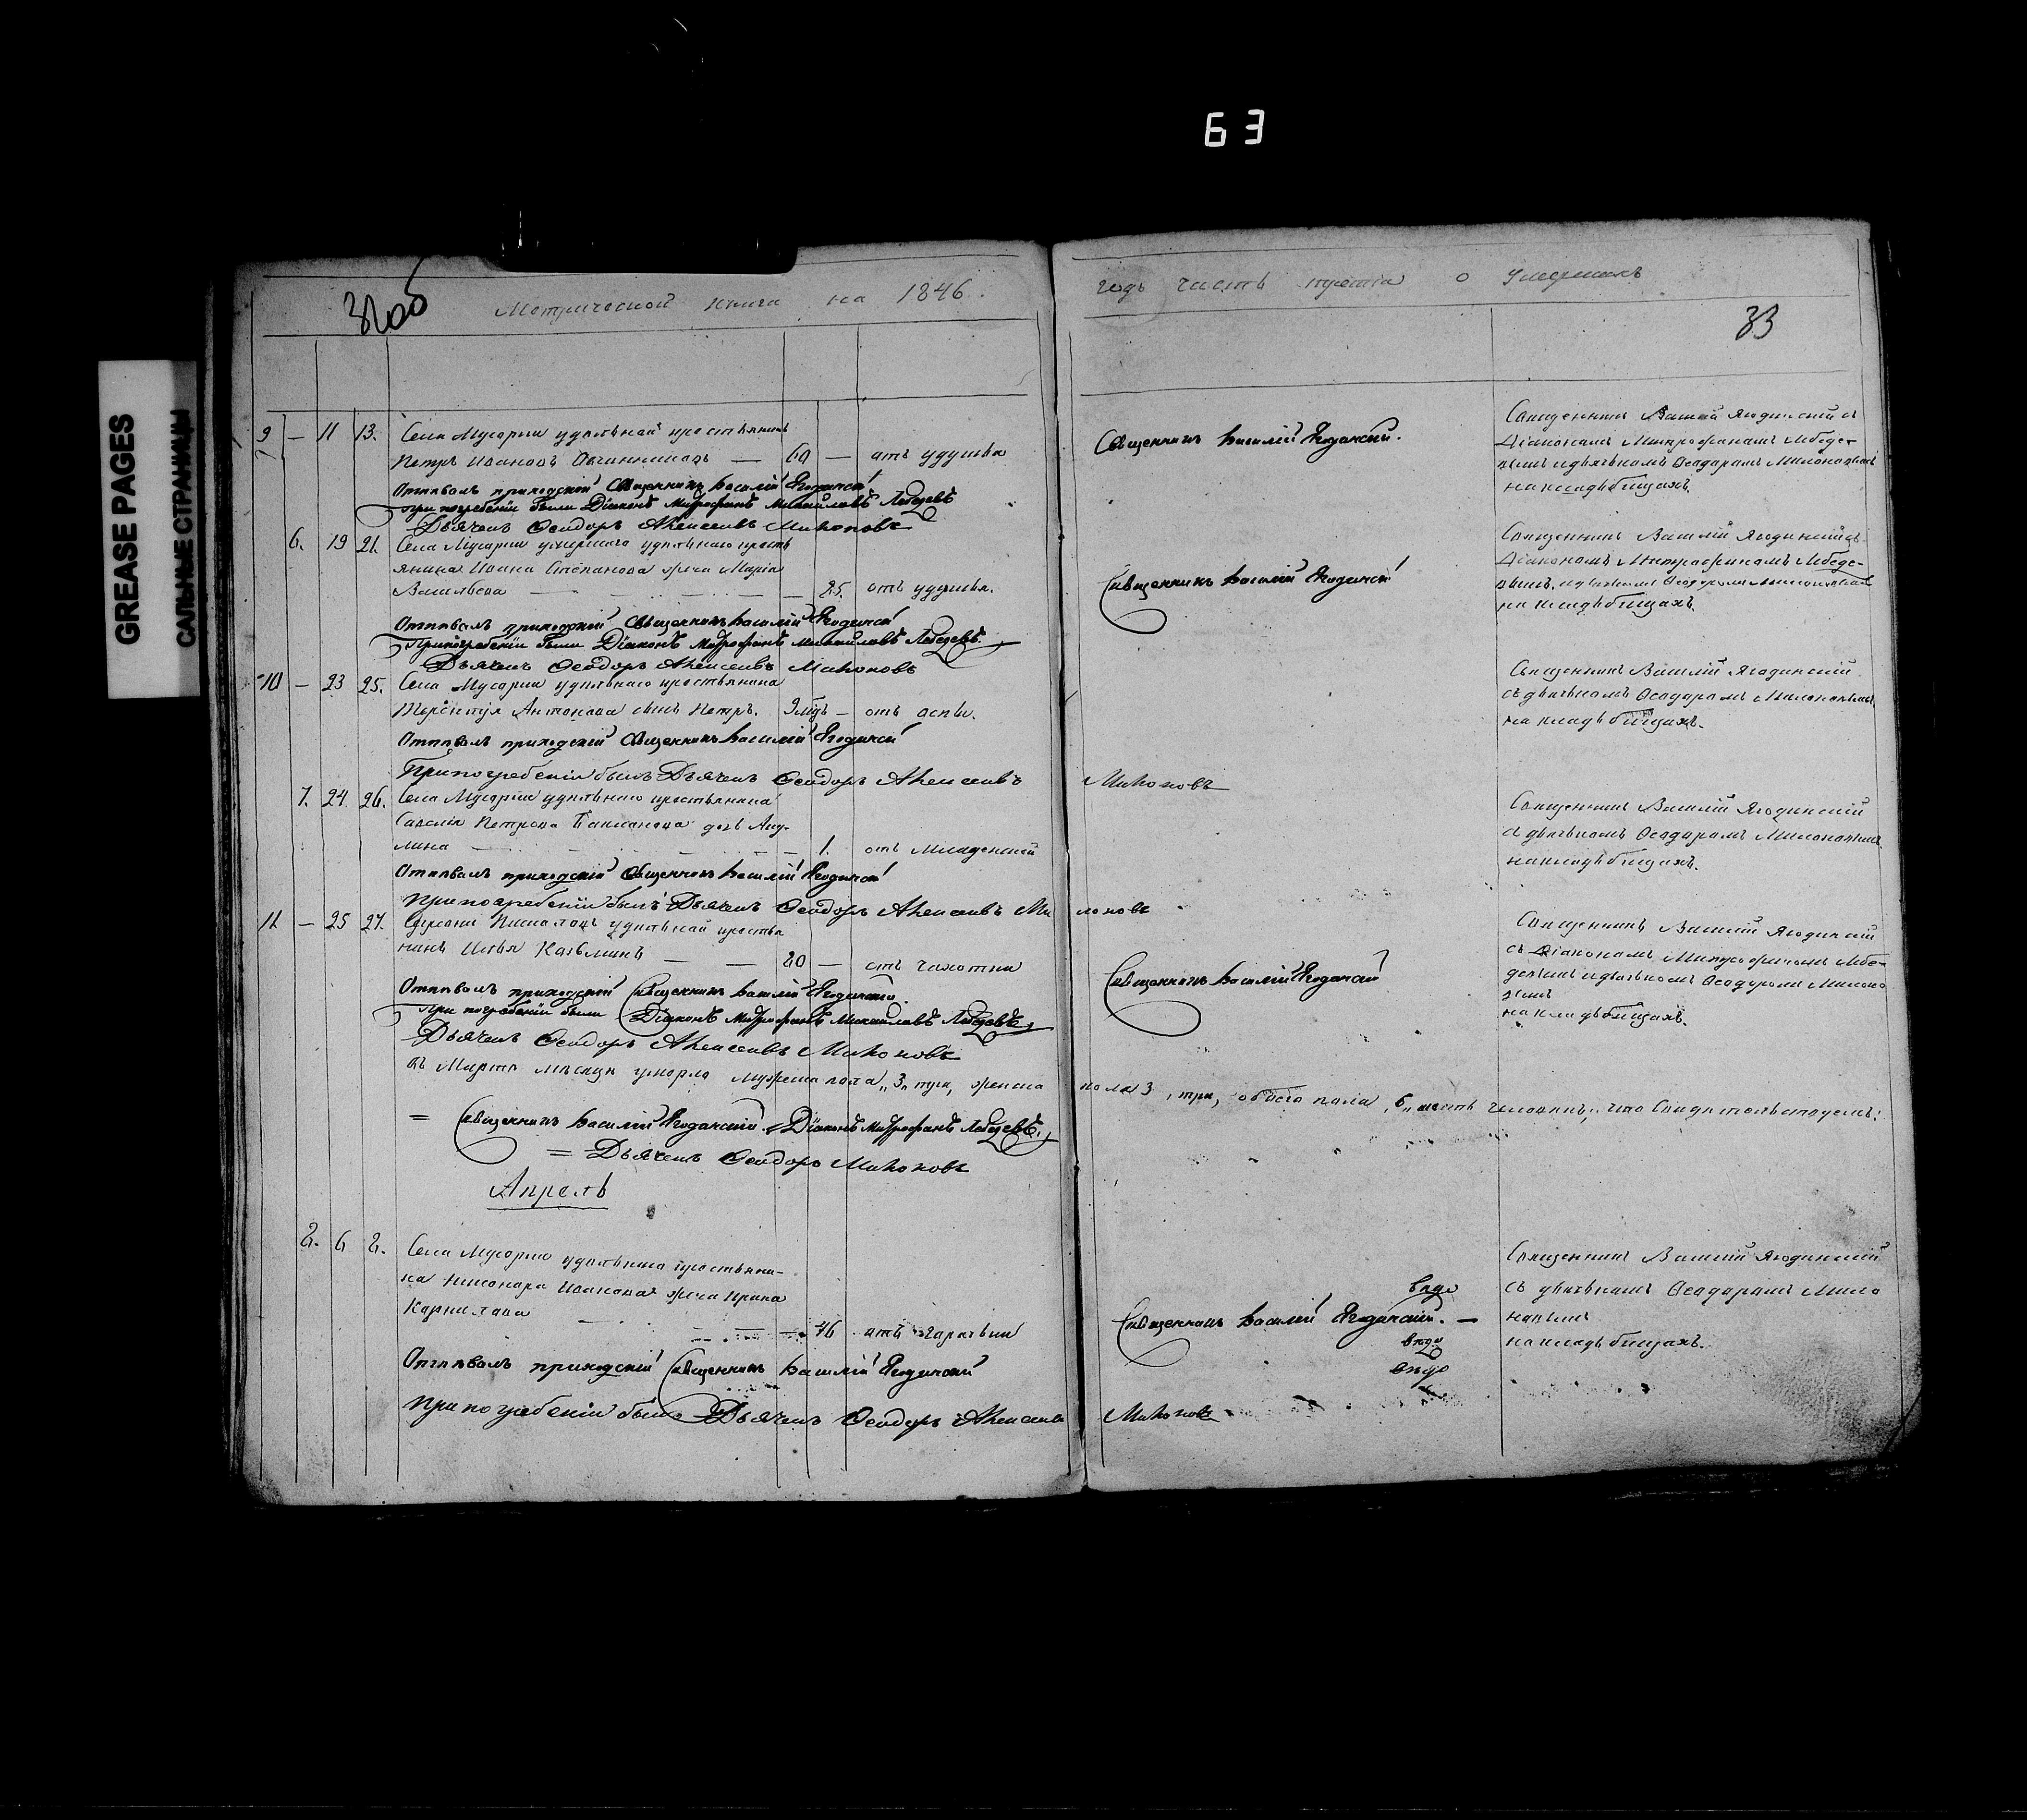 63
GREASE PAGES
САЛЬНЫЕ СТРАНИЦЫ
32об
Метрической книги на 1846.
годъ часть третiя о умершихъ
33
9 — 11 13. Села Мусорки удѣльной крестьянинъ
Петръ Ивановъ Овчинниковъ — 60 — отъ удушья
Отпѣвалъ приходскiй Священникъ Василiй Ягодинскiй
При погребенiи были Дiаконъ Митрофанъ Михайловъ Лебедевъ
Дьячекъ Ѳеодоръ Алексѣевъ Милоновъ
Священникъ Василiй Ягодинскiй.
Священникъ Василiй Ягодинскiй съ
Дiакономъ Митрофаномъ Лебеде-
вымъ и дьячкомъ Ѳеодоромъ Милоновымъ
на кладьбищахъ.
6. 19 21. Села Мусорки умершаго удѣльнаго кресть
янина Ивана Степанова жена Марiя
Васильева — 85. отъ удушья.
Отпѣвалъ приходскiй Священникъ Василiй Ягодинскiй
При погребенiи были Дiаконъ Митрофанъ Михайловъ Лебедевъ.
Дьячекъ Ѳеодоръ Алексѣевъ Милоновъ
Священникъ Василiй Ягодинскiй
Священникъ Василiй Ягодинскiй съ
Дiакономъ Митрофаномъ Лебеде-
вымъ и дьячкомъ Ѳеодоромъ Милоновымъ
на кладьбищахъ.
10 — 23 25. Села Мусорки удѣльнаго крестьянина
Терентiя Антонова сынъ Петръ. — отъ оспы.
Отпѣвалъ приходскiй Священникъ Василiй Ягодинскiй
При погребенiи былъ Дьячекъ Ѳеодоръ Алексѣевъ Милоновъ
Священникъ Василiй Ягодинскiй
съ дьячкомъ Ѳеодоромъ Милоновымъ
на кладьбищахъ.
7. 24. 26. Села Мусорки удѣльнаго крестьянина
Савелiя Петрова дочь Аку-
лина — 1. отъ младенской
Отпѣвалъ приходскiй Священникъ Василiй Ягодинскiй
При погребенiи былъ Дьячекъ Ѳеодоръ Алексѣевъ Милоновъ
Священникъ Василiй Ягодинскiй
съ дьячкомъ Ѳеодоромъ Милоновымъ
на кладьбищахъ.
11 — 25 27. удѣльной крестья
нинъ Илья Козьминъ — 80 — отъ чахотки
Отпѣвалъ приходскiй Священникъ Василiй Ягодинскiй.
При погребенiи были Дiаконъ Митрофанъ Михайловъ Лебедевъ,
Дьячекъ Ѳеодоръ Алексѣевъ Милоновъ
Священникъ Василiй Ягодинскiй
Священникъ Василiй Ягодинскiй
съ Дiакономъ Митрофаномъ Лебе-
девымъ и дьячкомъ Ѳеодоромъ Милоно
вымъ
на кладьбищахъ.
въ Мартѣ мѣсяцѣ умерло мужеска пола „3„ три, женска пола 3, три, обоего пола, 6„ шесть человѣкъ, что свидѣтельствуемъ:
= Священникъ Василiй Ягодинскiй. Дiаконъ Митрофанъ Лебедевъ.
= Дьячекъ Ѳеодоръ Милоновъ
Апрель
8. 6 8. Села Мусорки удѣльнаго крестьяни-
на Никонора Иванова жена Ирина
Карнилова — 46 отъ горячьки
Отпѣвалъ приходскiй Священникъ Василiй Ягодинскiй
При погребенiи былъ Дьячекъ Ѳеодоръ Алексѣевъ Милоновъ
Священникъ Василiй Ягодинскiй. —
Священникъ Василiй Ягодинскiй
съ дьячкомъ Ѳеодоромъ Мило
новымъ
на кладьбищахъ.